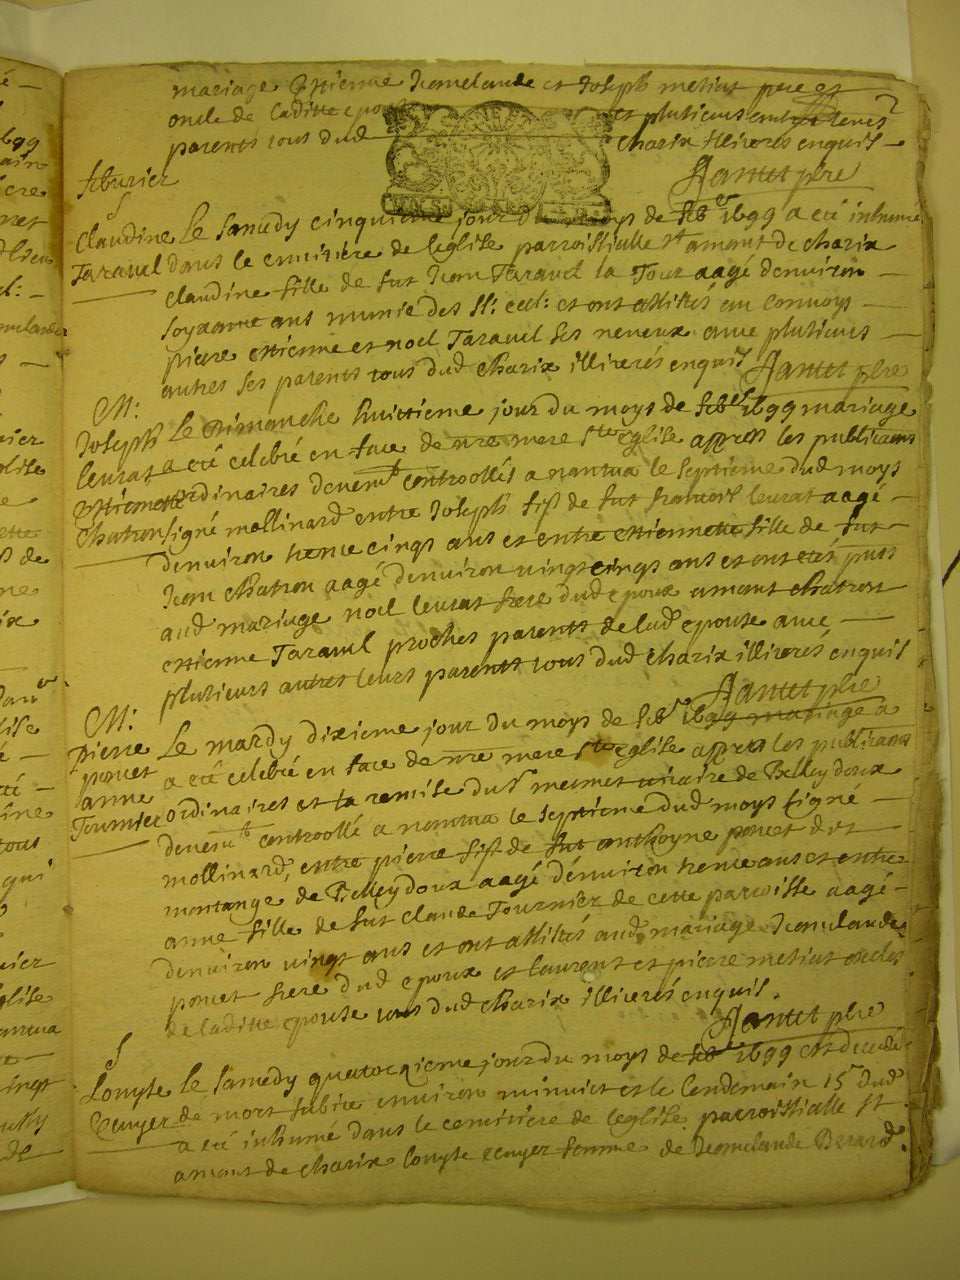 mariage Estienne Jeanclaude et Joseph metiat pere et
oncle de laditte epouse et plusieurs autres leurs
parents tous dud charix illiterés enquis
Jantet pbre
feburier
S
Claudine Taravel
Le samedy cinquieme jour du moys de feb.er 1699 a eté inhumé
dans le cemitiere de leglise parroissialle st amant de charix
claudine fille de fut Jean Taravel la Tour aagé denuiron
soyxante ans munie des st: eccl: et ont assistés au conuoys
pierre estienne et noel Taravel ses neveux aune plusieurs
autres ses parents tous dud charix illiterés enquis
Jantet pbre
M:
Joseph leurat estiennette Chatron
Le Dimanche huictieme jour du moys de feb.er 1699 mariage
a eté celebré en face de nre mere ste eglise appres les publicaons
ordinaires deuem.t controollés a nantua le septieme dud moys
signé mollinard entre Joseph fils de fut francois leurat aagé
denuiron trente cinqs ans et entre estiennette fille de fut
Jean chatron aagé denuiron vingt cinqs ans et ont etés puts
aud mariage noel leurat frere dud epoux amant chatron
estienne Taravel proches parents de lad epouse auec
plusieurs autres leurs parents tous dud charix illiterés enquis
Jantet pbre
M:
Pierre poncet anne Tournier
Le mardy dixieme jour du moys de feb.er 1699 mariage a
a eté celebré en face de nre mere ste eglise appres les publicaons
ordinaires et la remise du sr mesmet uicaire de Belleydoux
deuem.t controollé a nantua le septieme dud moys signé
mollinard, entre pierre fils de fut anthoyne poncet dit
montange de Belleydoux aagé denuiron trente ans et entre
anne fille de fut claude Tournier de cette parroisse aagé
denuiron vingt ans et ont assistés aud mariage Jeanclaude
poncet frere dud epoux et laurent et pierre metiat oncles
de laditte epouse tous dud charix illiterés enquis.
Jantet pbre
S
Lonyse Ecuyer
Le samedy quatorzieme jour du moys de feb 1699 est decedé
de mort subite enuiron minuict et le lendemain 15e dud
a eté inhumé dans le cemitiere de leglise parroissialle st
amant de charix lonyse ecuyer femme de Jeanclaude Berard